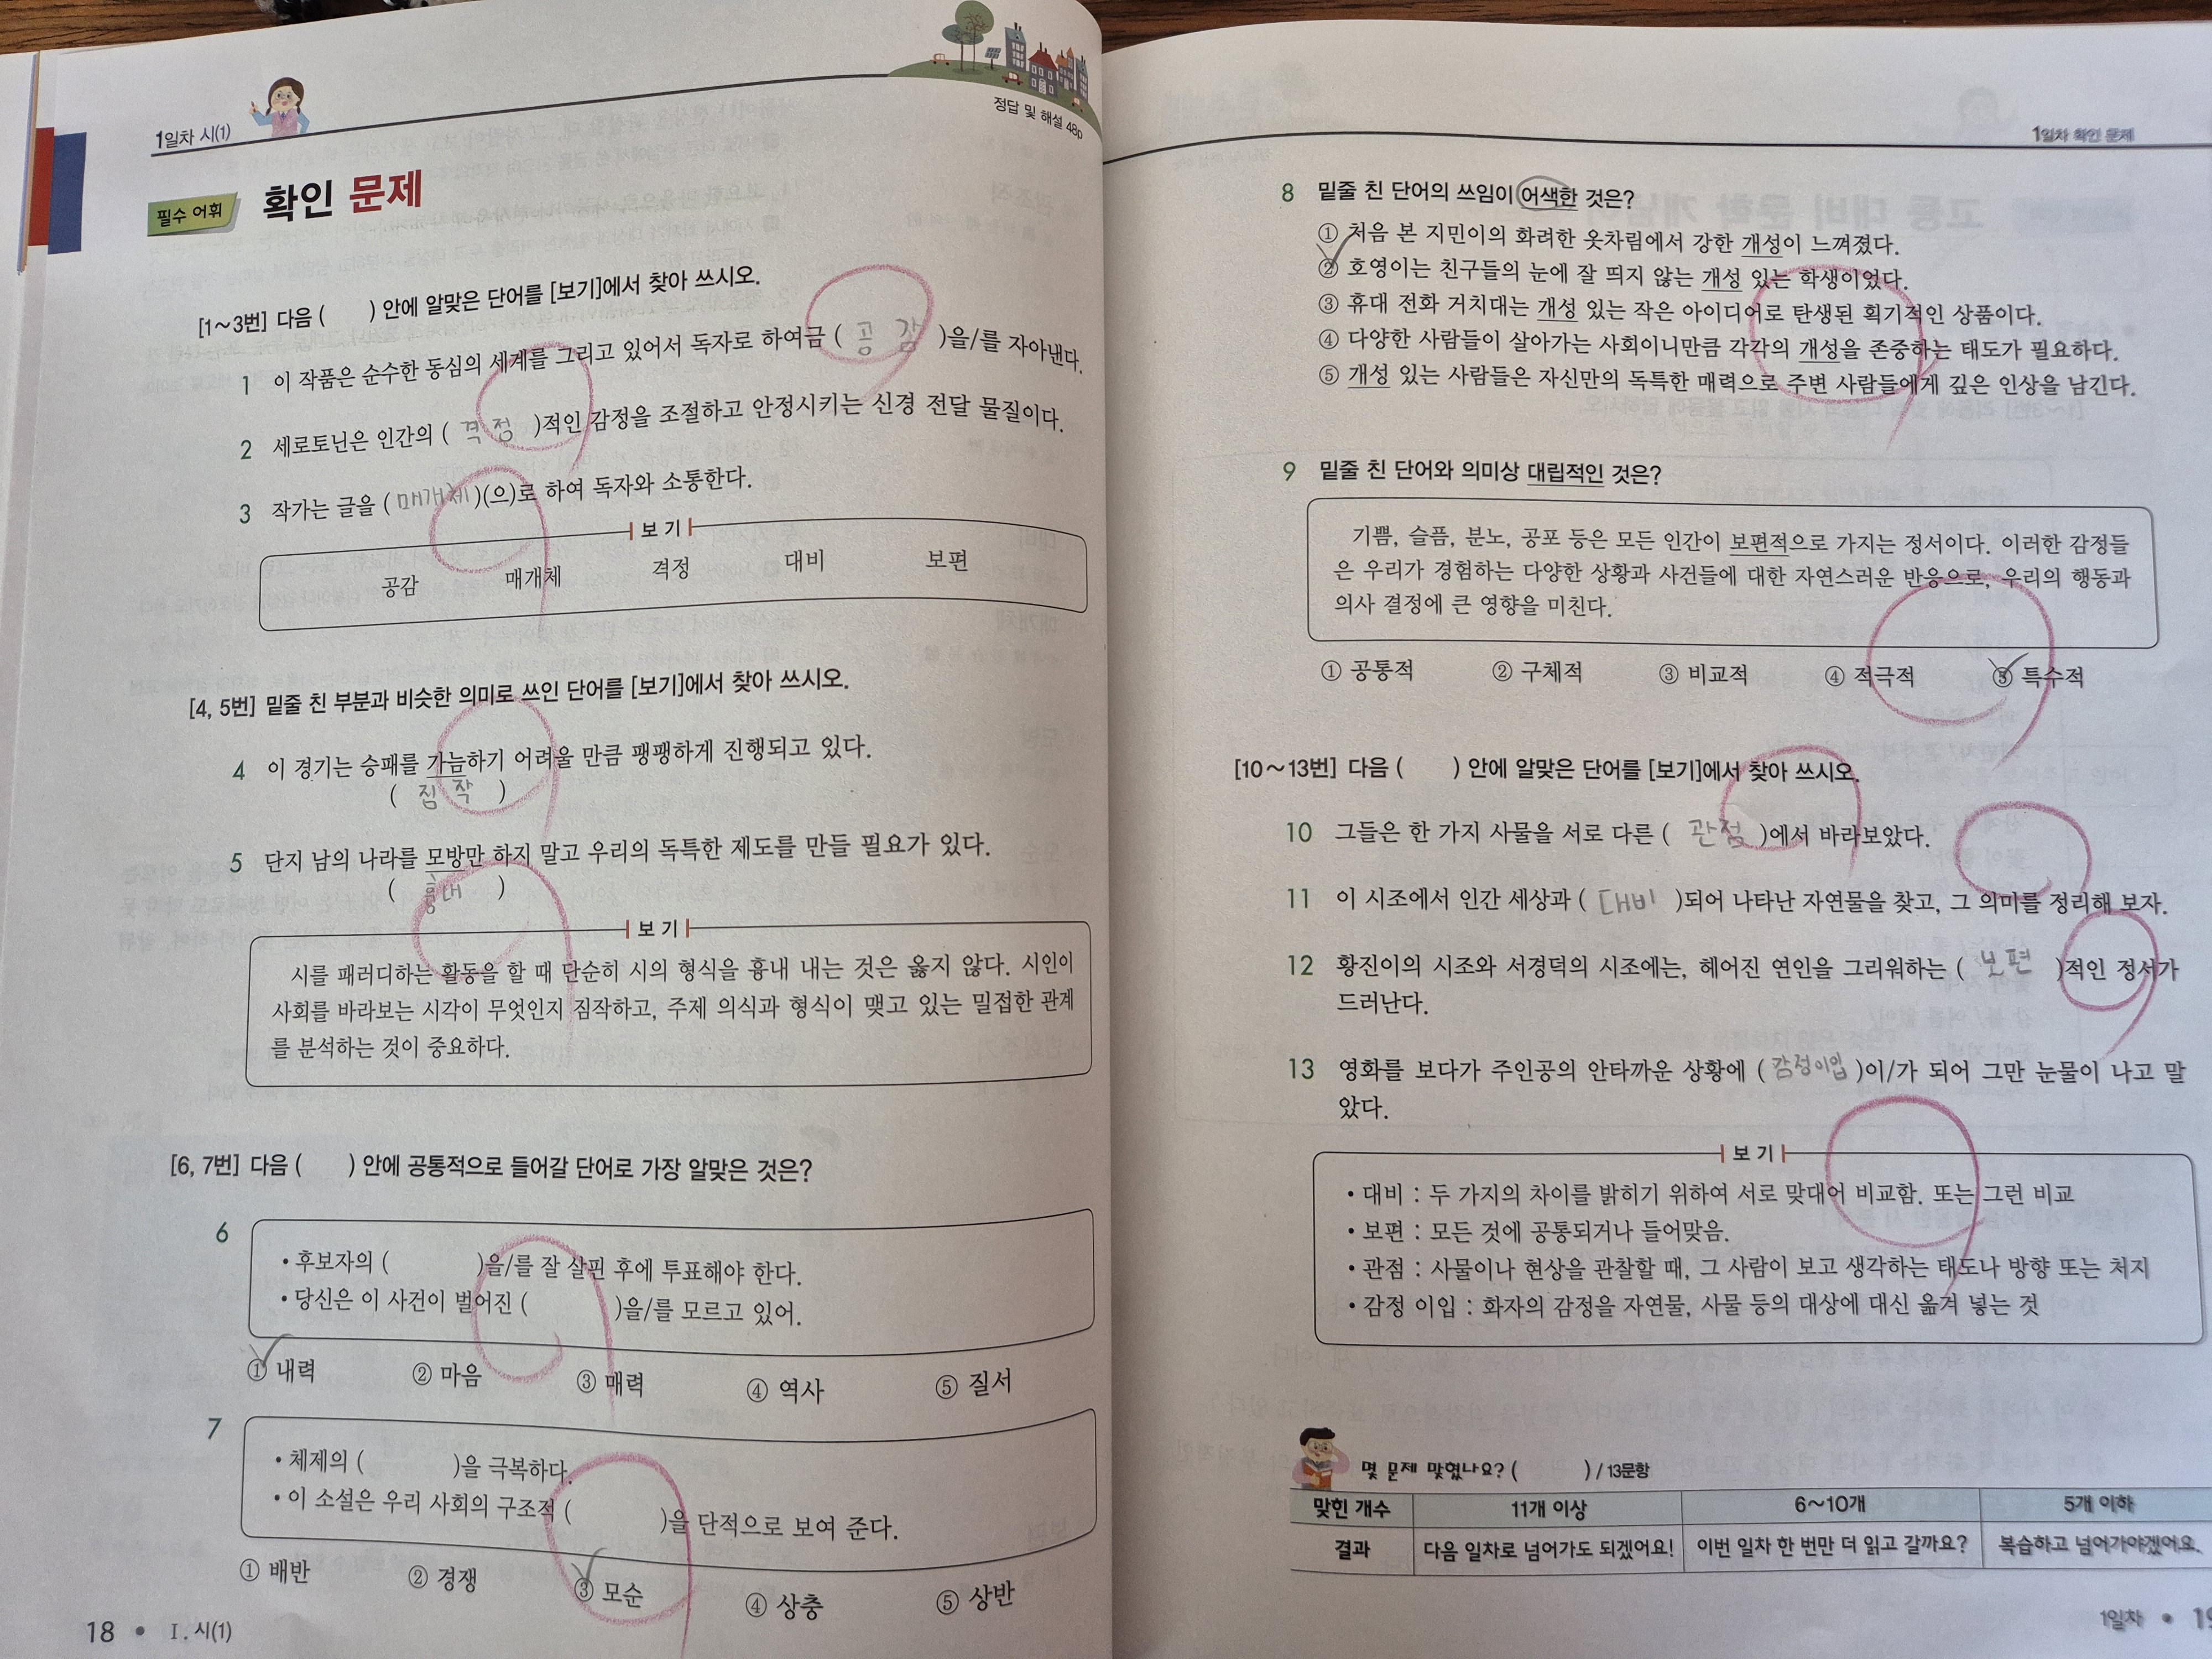 1일차 시(1)
정답 및 해설 48p
필수 어휘 확인 문제
[1~3번] 다음 ( ) 안에 알맞은 단어를 [보기]에서 찾아 쓰시오.
1 이 작품은 순수한 동심의 세계를 그리고 있어서 독자로 하여금 ( 공감 )을/를 자아낸다.
2 세로토닌은 인간의 ( 격정 )적인 감정을 조절하고 안정시키는 신경 전달 물질이다.
3 작가는 글을 ( 매개체 )(으)로 하여 독자와 소통한다.
보기
공감 매개체 격정 대비 보편
[4, 5번] 밑줄 친 부분과 비슷한 의미로 쓰인 단어를 [보기]에서 찾아 쓰시오.
4 이 경기는 승패를 가늠하기 어려울 만큼 팽팽하게 진행되고 있다.
( 짐작 )
5 단지 남의 나라를 모방만 하지 말고 우리의 독특한 제도를 만들 필요가 있다.
( 흉내 )
보기
시를 패러디하는 활동을 할 때 단순히 시의 형식을 흉내 내는 것은 옳지 않다. 시인이
사회를 바라보는 시각이 무엇인지 짐작하고, 주제 의식과 형식이 맺고 있는 밀접한 관계
를 분석하는 것이 중요하다.
[6, 7번] 다음 ( ) 안에 공통적으로 들어갈 단어로 가장 알맞은 것은?
6
• 후보자의 ( )을/를 잘 살핀 후에 투표해야 한다.
• 당신은 이 사건이 벌어진 ( )을/를 모르고 있어.
① 내력 ② 마음 ③ 매력 ④ 역사 ⑤ 질서
7
• 체제의 ( )을 극복하다.
• 이 소설은 우리 사회의 구조적 ( )을 단적으로 보여 준다.
① 배반 ② 경쟁 ③ 모순 ④ 상충 ⑤ 상반
18 • Ⅰ. 시(1)
1일차 확인 문제
8 밑줄 친 단어의 쓰임이 어색한 것은?
① 처음 본 지민이의 화려한 옷차림에서 강한 개성이 느껴졌다.
② 호영이는 친구들의 눈에 잘 띄지 않는 개성 있는 학생이었다.
③ 휴대 전화 거치대는 개성 있는 작은 아이디어로 탄생된 획기적인 상품이다.
④ 다양한 사람들이 살아가는 사회이니만큼 각각의 개성을 존중하는 태도가 필요하다.
⑤ 개성 있는 사람들은 자신만의 독특한 매력으로 주변 사람들에게 깊은 인상을 남긴다.
9 밑줄 친 단어와 의미상 대립적인 것은?
기쁨, 슬픔, 분노, 공포 등은 모든 인간이 보편적으로 가지는 정서이다. 이러한 감정들
은 우리가 경험하는 다양한 상황과 사건들에 대한 자연스러운 반응으로, 우리의 행동과
의사 결정에 큰 영향을 미친다.
① 공통적 ② 구체적 ③ 비교적 ④ 적극적 ⑤ 특수적
[10~13번] 다음 ( ) 안에 알맞은 단어를 [보기]에서 찾아 쓰시오.
10 그들은 한 가지 사물을 서로 다른 ( 관점 )에서 바라보았다.
11 이 시조에서 인간 세상과 ( 대비 )되어 나타난 자연물을 찾고, 그 의미를 정리해 보자.
12 황진이의 시조와 서경덕의 시조에는, 헤어진 연인을 그리워하는 ( 보편 )적인 정서가
드러난다.
13 영화를 보다가 주인공의 안타까운 상황에 ( 감정이입 )이/가 되어 그만 눈물이 나고 말
았다.
보기
• 대비 : 두 가지의 차이를 밝히기 위하여 서로 맞대어 비교함. 또는 그런 비교
• 보편 : 모든 것에 공통되거나 들어맞음.
• 관점 : 사물이나 현상을 관찰할 때, 그 사람이 보고 생각하는 태도나 방향 또는 처지
• 감정 이입 : 화자의 감정을 자연물, 사물 등의 대상에 대신 옮겨 넣는 것
몇 문제 맞혔나요? ( ) / 13문항
맞힌 개수 11개 이상 6~10개 5개 이하
결과 다음 일차로 넘어가도 되겠어요! 이번 일차 한 번만 더 읽고 갈까요? 복습하고 넘어가야겠어요.
1일차 •